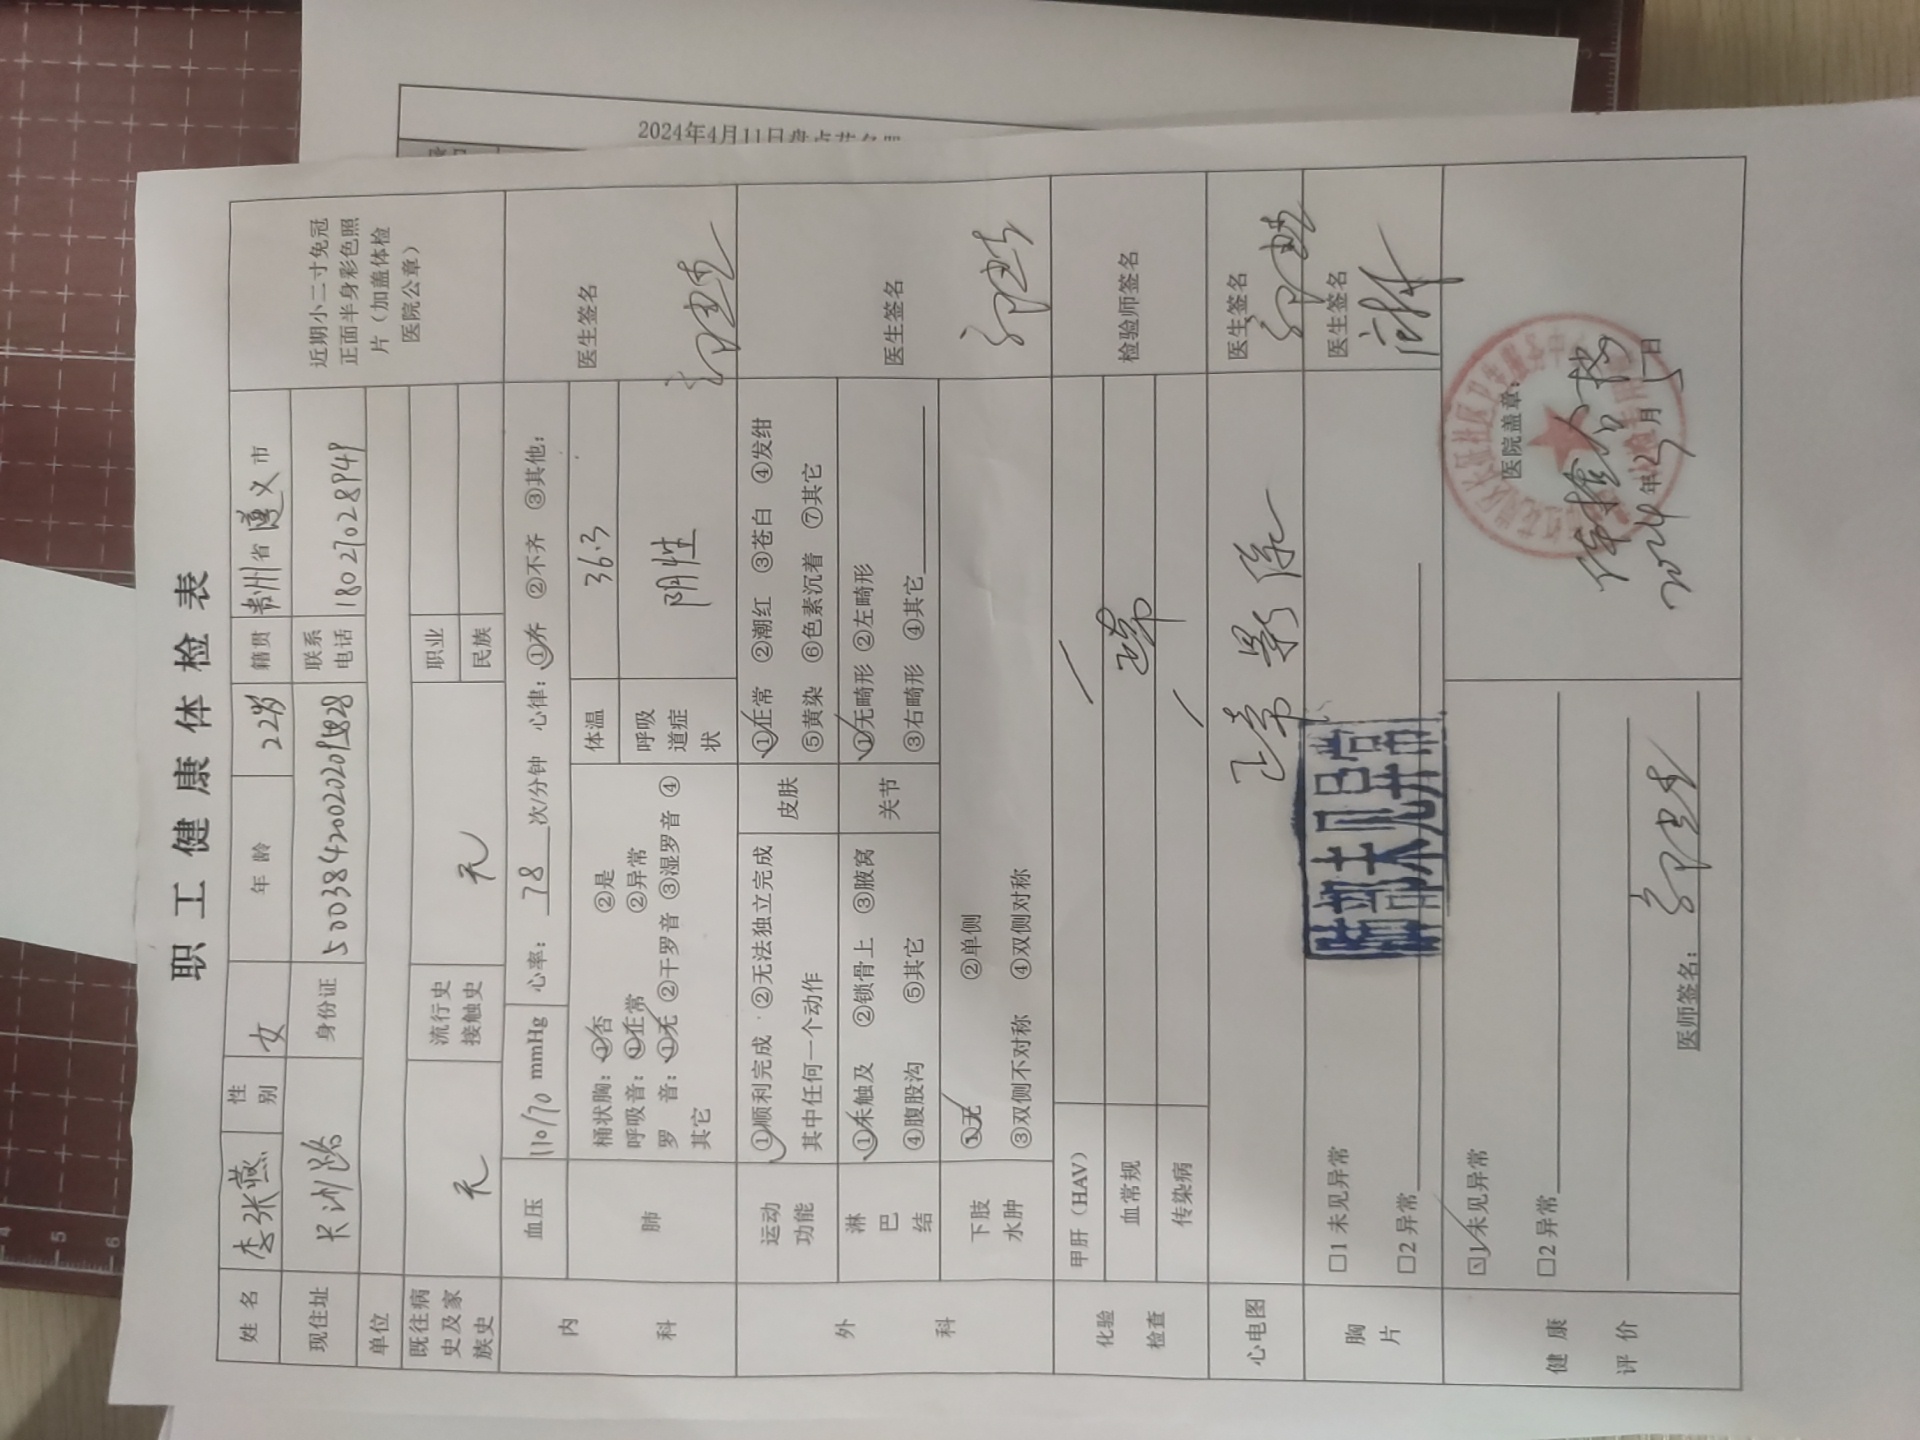 2024年4月11日盘点花名册
职工健康体检表
姓名 李张燕 性别 女 年龄 22岁 籍贯 贵州省遵义市
近期小二寸免冠
正面半身彩色照
片（加盖体检
医院公章）
现住址 长 路 身份证 联系电话 18027028949
单位
既往病史及家族史 无 流行史接触史 无 职业
民族
内科 血压 110/70 mmHg 心率：78次/分钟 心律：①齐 ②不齐 ③其他：
医生签名
肺 桶状胸：①否 ②是 体温 36.3
呼吸音：①正常 ②异常 呼吸道症状 阴性
罗音：①无 ②干罗音 ③湿罗音 ④
其它
外科 运动功能 ①顺利完成 ②无法独立完成
其中任何一个动作
皮肤 ①正常 ②潮红 ③苍白 ④发绀
⑤黄染 ⑥色素沉着 ⑦其它
医生签名
淋巴结 ①未触及 ②锁骨上 ③腋窝
④腹股沟 ⑤其它
关节 ①无畸形 ②左畸形
③右畸形 ④其它
下肢水肿 ①无 ②单侧
③双侧不对称 ④双侧对称
化验检查 甲肝（HAV） 检验师签名
血常规 正常
传染病
心电图 正常 医生签名
胸片 □1 未见异常 医生签名
□2 异常
胸部未见异常
健康评价 ☑1 未见异常 医院盖章：
□2 异常 体检合格
2024年2月1日
医师签名：